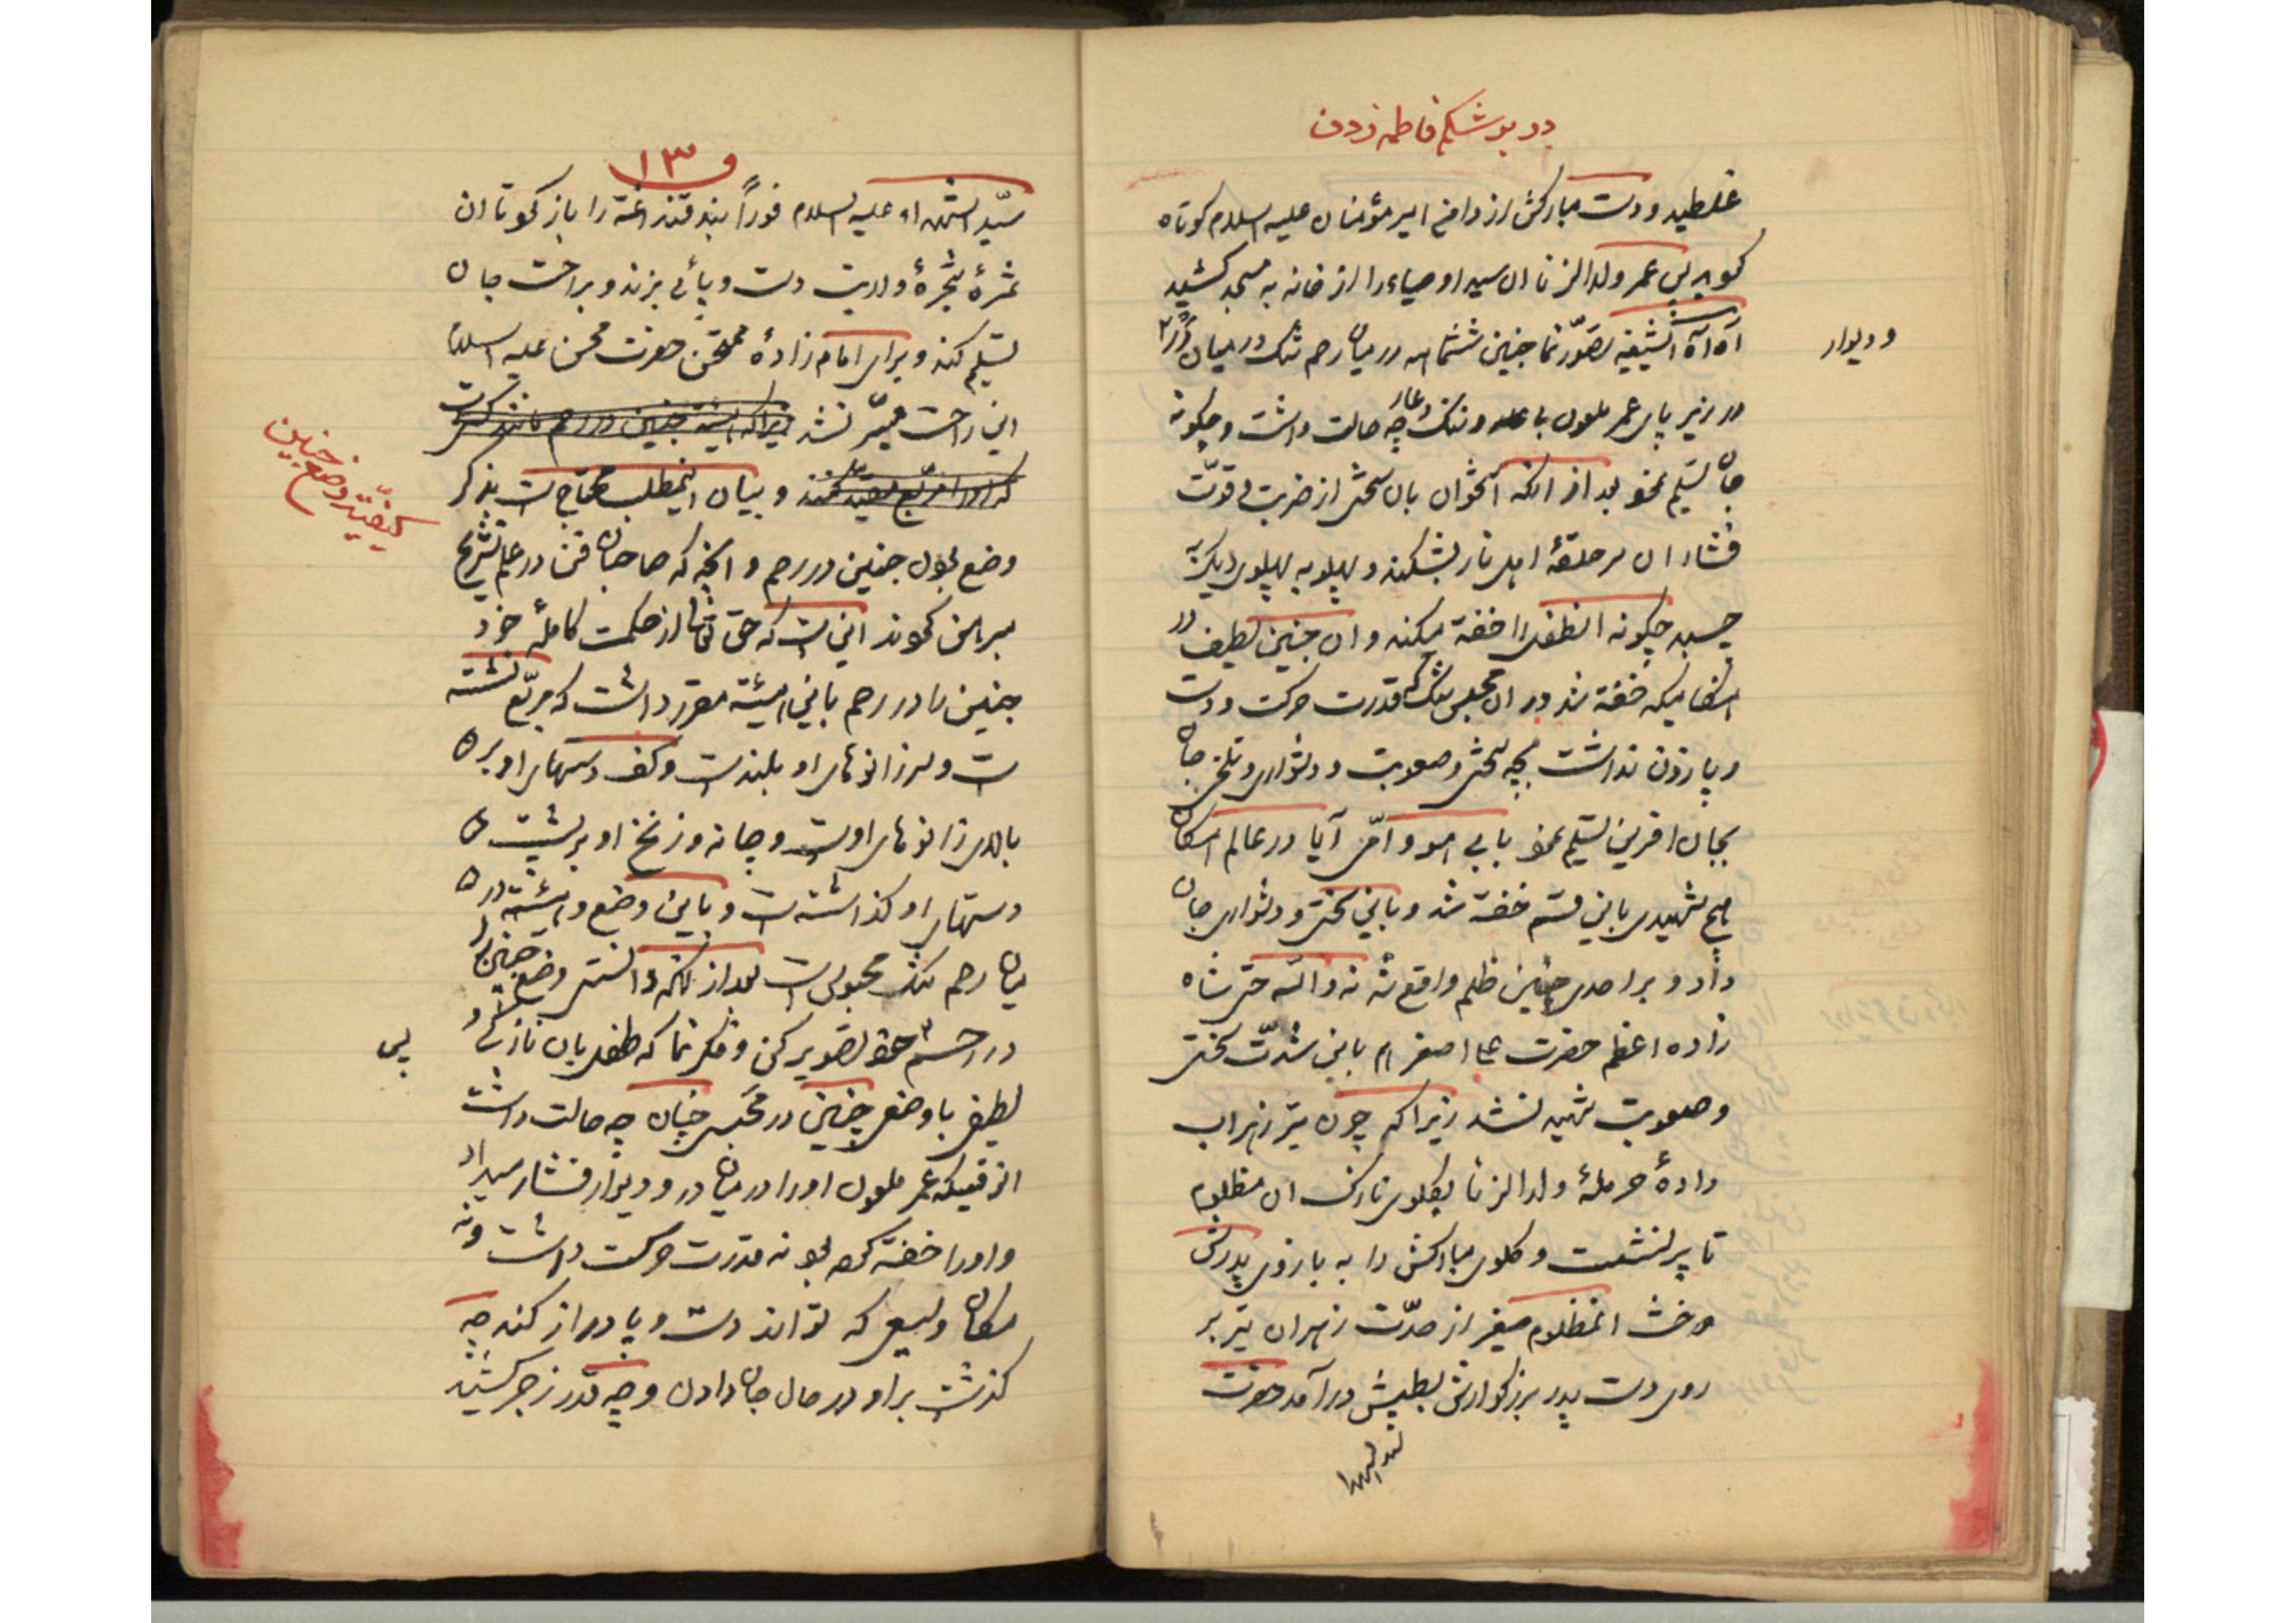 در بر شکم فاطمه زدن
غلطید و دست مبارکش از دامن امیر مؤمنان علیه السلام کوتاه
کردید پس عمر ولدالزنا ان سید اوصیاء را از خانه به مسجد کشید
آه آه ایشیعه تصوّر نما جنین ششماهه در میان رحم تنک در میان در
و دیوار
در زیر پای عمر ملعون با عمله و تنک چه حالت داشت و چکونه
جان تسلیم نمود بعد از انکه استخوان بان سختی از ضربت و قوّت
فشار ان سر حلقهٔ اهل نار بشکند و پهلو به پهلوی دیکر
چسبد چکونه انطفل را خفه میکند و ان جنین لطیف در
هنکامیکه خفه شد در ان محبس تنک که قدرت حرکت و دست
و پا زدن نداشت بچه سختی و صعوبت و دشواری و تلخی جان
بجان افرین تسلیم نمود بابی هو و امّی آیا در عالم امکان
هیچ شهیدی باین قسم خفه شد و باین سختی و دشواری جان
داد و بر احدی چنین ظلم واقع شد نه والله حتی شاه
زاده اعظم حضرت علی اصغر هم باین شدّت سختی
و صعوبت شهید نشد زیرا که چون تیر زهراب
دادهٔ حرملهٔ ولدالزنا بکلوی نازک ان مظلوم
تا پر نشست و کلوی مبارکش را به بازوی پدرش
دوخت انمظلوم صغیر از حدّت زهر ان تیر بر
روی دست پدر بزرکوارش بطپش درآمد حضرت
سید الشهدا
۱۳
سیّد الشهداء علیه السلام فوراً بند قنداقه را باز کرد تا ان
ثمرهٔ شجرهٔ ولایت دست و پائی بزند و براحت جان
تسلیم کند و برای امام زادهٔ ممتحن حضرت محسن علیه السلام
این راحت میسّر نشد زیرا که هیئة جنین در رحم مانند کسی است
که او را مربّع مقیّد کنند و بیان اینمطلب محتاج است بذکر
کیفیّت وضع جنین
وضع بودن جنین در رحم و انچه که صاحبان فن در علم تشریح
مبرهن کردند این است که حق تعالی از حکمت کاملهٔ خود
جنین را در رحم باین هیئة مقرر داشت که مربّع نشسته
است و سر زانوهای او بلند است و کف دستهای او بر
بالای زانوهای اوست و چانه و زنخ او بر پشت
دستهای او کذاشته است و باین وضع و هیئة در
میان رحم تنک محبوس است بعد از انکه دانستی وضع جنین را
در رحم خود تصویر کن و فکر نما که طفل بان نازکی و
پس
لطیفی با وضع چنین در محبس چنان چه حالت داشت
انوقتیکه عمر ملعون او را در میان در و دیوار فشار میداد
و او را خفه کرده بود نه قدرت حرکت داشت و نه
مکان وسیعی که تواند دست و پا دراز کند چه
کذشت بر او در حال جان دادن و چه قدر زجر کشید